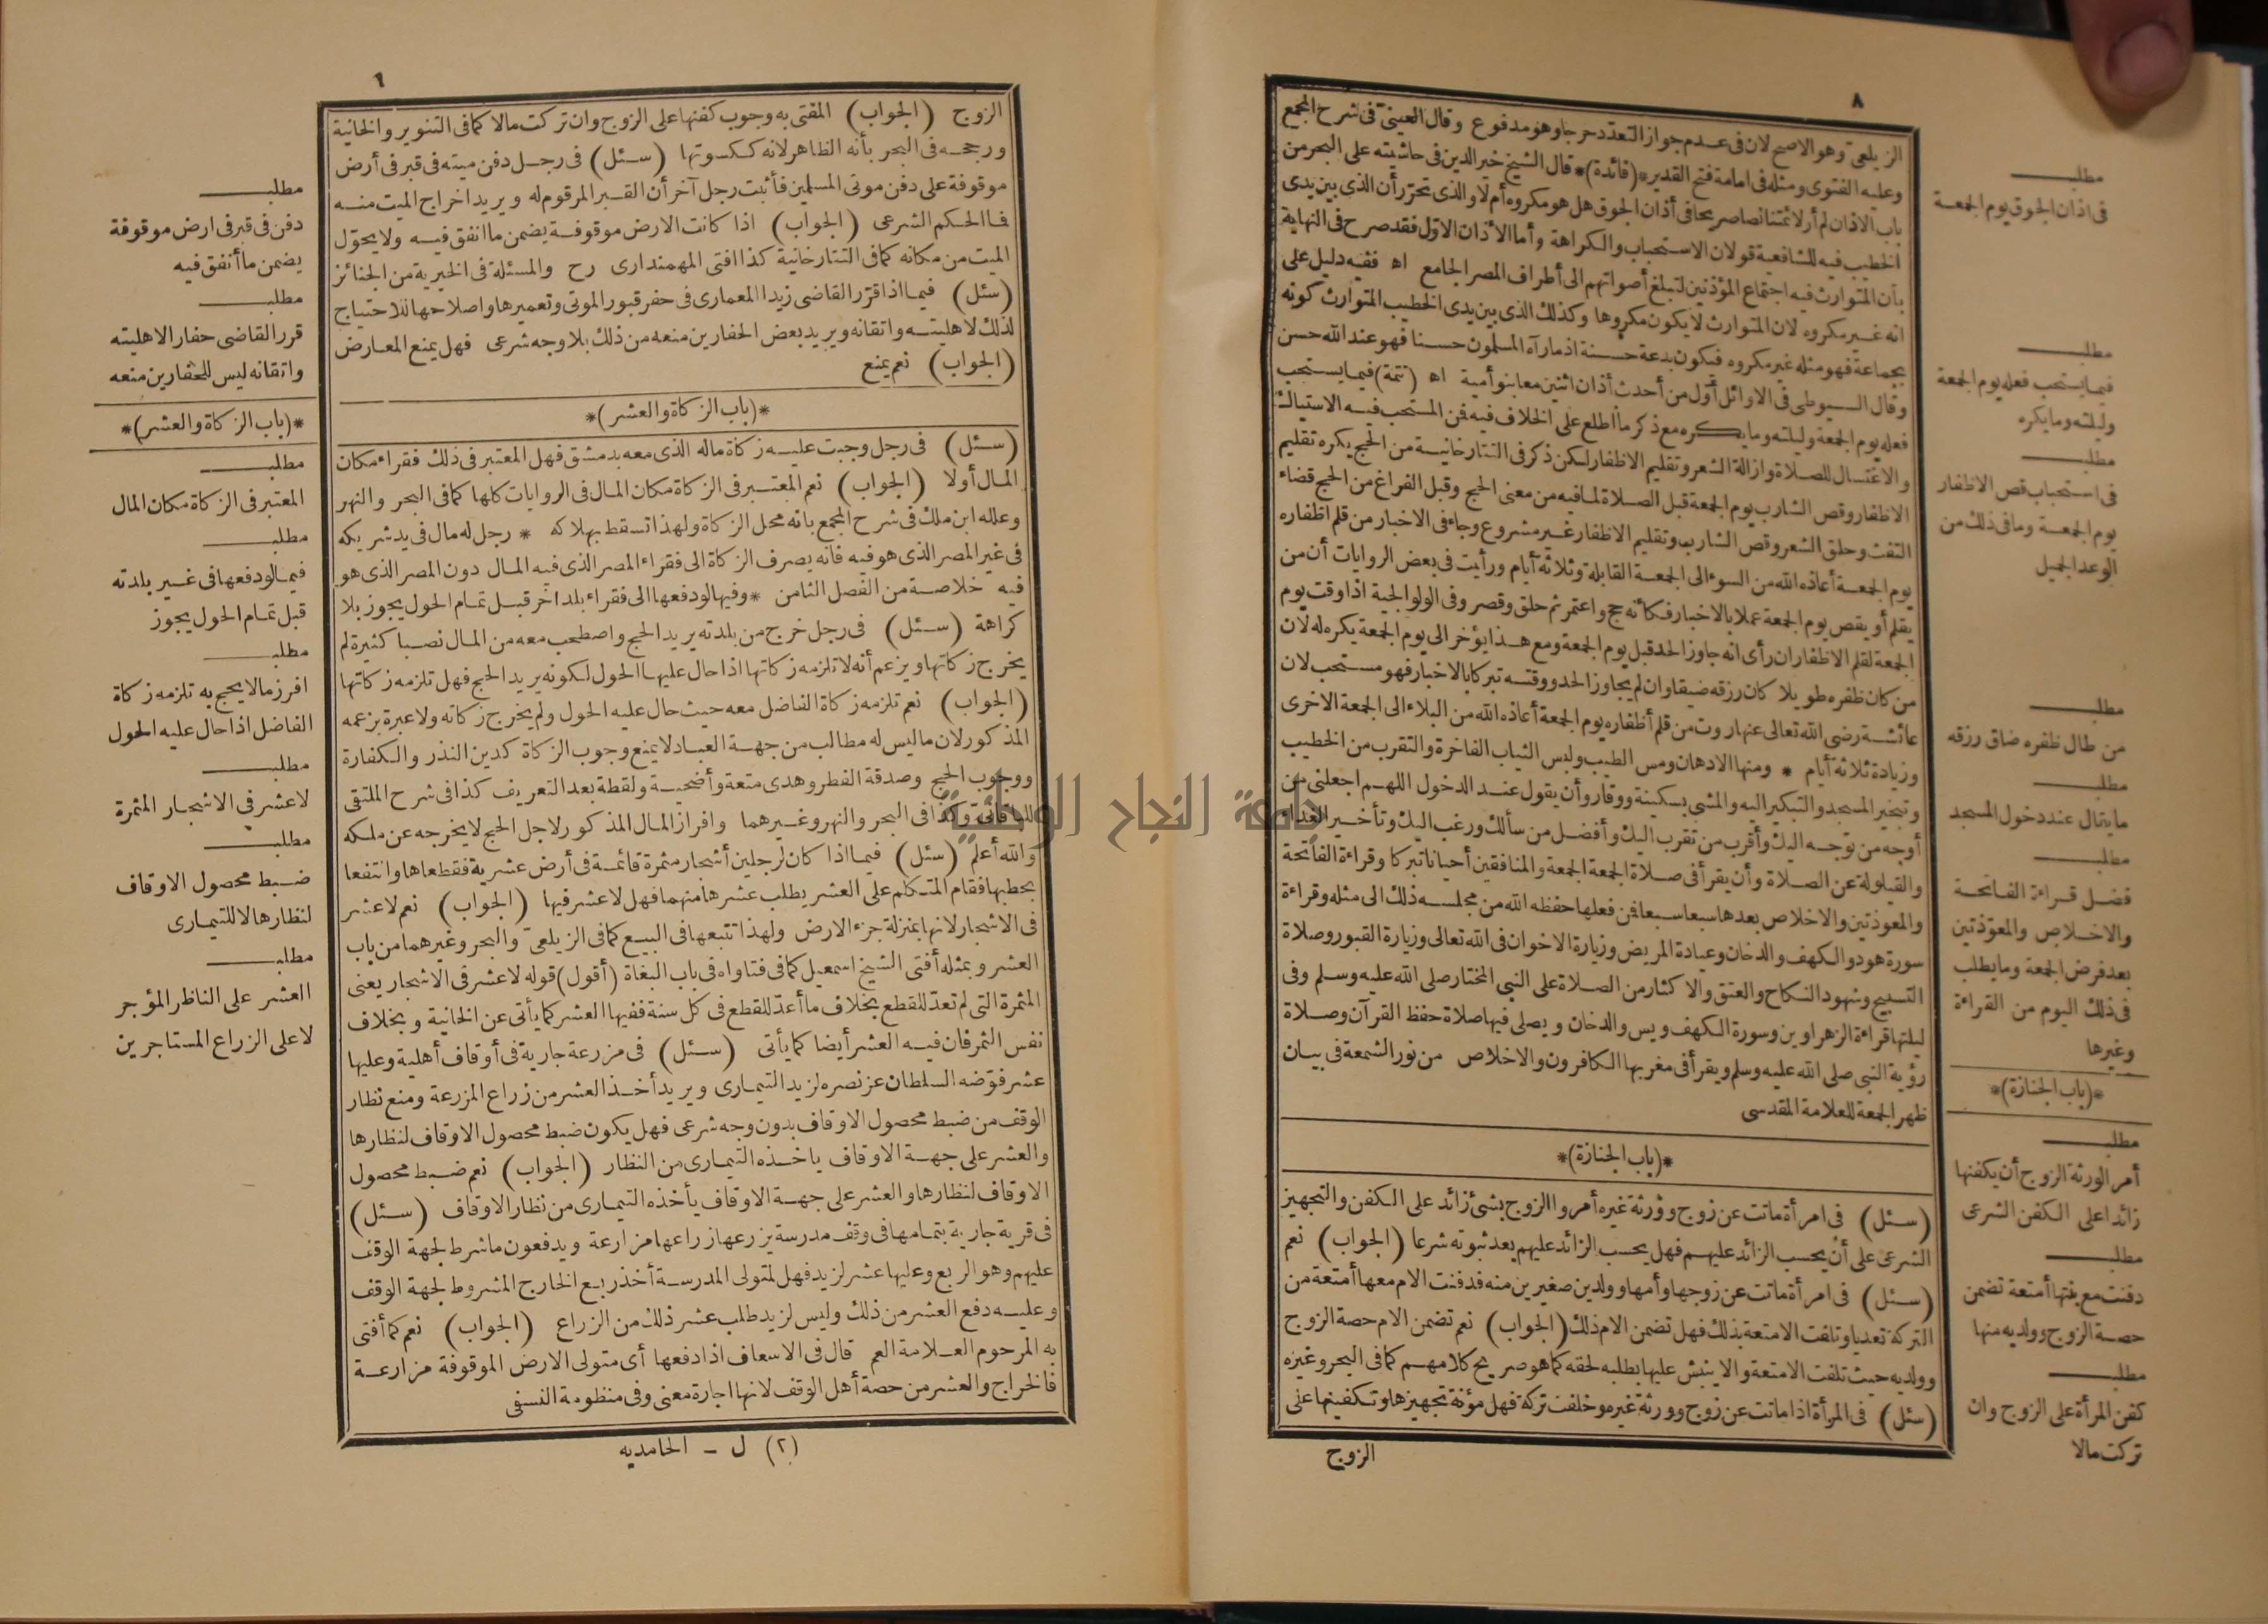 ٨
الزيلعى وهو الاصح لان فى عدم جواز التعدد حرجا وهو مدفوع وقال العينى فى شرح المجمع
وعليه الفتوى ومثله فى امامة فتح القدير *(فائدة)* قال الشيخ خير الدين فى حاشيته على البحر من
باب الاذان لم أر لائمتنا نصا صريحا فى أذان الجوق هل هو مكروه أم لا والذى تحرر أن الذى بين يدى
الخطيب فيه للشافعية قولان الاستحباب والكراهة وأما الاذان الاول فقد صرح فى النهاية
بأن المتوارث فيه اجتماع المؤذنين لتبلغ أصواتهم الى أطراف المصر الجامع اه ففيه دليل على
انه غير مكروه لان المتوارث لا يكون مكروها وكذلك الذى بين يدى الخطيب المتوارث كونه
بجماعة فهو مثله غير مكروه فيكون بدعة حسنة اذ ما رآه المسلمون حسنا فهو عند الله حسن
وقال السيوطى فى الاوائل أول من أحدث أذان اثنين معا بنو أمية اه (تتمة) فيما يستحب
فعله يوم الجمعة وليلته وما يكره مع ذكر ما أطلع على الخلاف فيه فمن المستحب فيه الاستياك
والاغتسال للصلاة وازالة الشعر وتقليم الاظفار لكن ذكر فى التتارخانية من الحج يكره تقليم
الاظفار وقص الشارب يوم الجمعة قبل الصلاة لما فيه من معنى الحج وقبل الفراغ من الحج قضاء
التفث وحلق الشعر وقص الشارب وتقليم الاظفار غير مشروع وجاء فى الاخبار من قلم اظفاره
يوم الجمعة أعاذه الله من السوء الى الجمعة القابلة وثلاثة أيام ورأيت فى بعض الروايات أن من
يقلم أو يقص يوم الجمعة عملا بالاخبار فكأنه حج واعتمر ثم حلق وقصر وفى الولوالجية اذا وقت يوم
الجمعة لقلم الاظفار ان رأى انه جاوز الحد قبل يوم الجمعة ومع هذا يؤخر الى يوم الجمعة يكره له لان
من كان ظفره طويلا كان رزقه ضيقا وان لم يجاوز الحد ووقته تبركا بالاخبار فهو مستحب لان
عائشة رضى الله تعالى عنها روت من قلم أظفاره يوم الجمعة أعاذه الله من البلاء الى الجمعة الاخرى
وزيادة ثلاثة أيام * ومنها الادهان ومس الطيب ولبس الثياب الفاخرة والتقرب من الخطيب
وتبخير المسجد والتبكير اليه والمشى بسكينة ووقار وأن يقول عند الدخول اللهم اجعلنى من
أوجه من توجه اليك وأقرب من تقرب اليك وأفضل من سألك ورغب اليك وتأخير الغداء
والقيلولة عن الصلاة وأن يقرأ فى صلاة الجمعة الجمعة والمنافقين أحيانا تبركا وقراءة الفاتحة
والمعوذتين والاخلاص بعدها سبعا سبعا فمن فعلها حفظه الله من مجلسه ذلك الى مثله وقراءة
سورة هود والكهف والدخان وعيادة المريض وزيارة الاخوان فى الله تعالى وزيارة القبور وصلاة
التسبيح وشهود النكاح والعتق والاكثار من الصلاة على النبى المختار صلى الله عليه وسلم وفى
ليلتها قراءة الزهراوين وسورة الكهف ويس والدخان ويصلى فيها صلاة حفظ القرآن وصلاة
رؤية النبى صلى الله عليه وسلم ويقرأ فى مغربها الكافرون والاخلاص من نور الشمعة فى بيان
ظهر الجمعة للعلامة المقدسى
*(باب الجنازة)*
(سئل) فى امرأة ماتت عن زوج وورثة غيره أمروا الزوج بشئ زائد على الكفن والتجهيز
الشرعى على أن يحسب الزائد عليهم فهل يحسب الزائد عليهم بعد ثبوته شرعا (الجواب) نعم
(سئل) فى امرأة ماتت عن زوجها وأمها وولدين صغيرين منه فدفنت الام معها أمتعة من
التركة تعديا وتلفت الامتعة بذلك فهل تضمن الام ذلك (الجواب) نعم تضمن الام حصة الزوج
وولديه حيث تلفت الامتعة والا ينبش عليها بطلبه لحقه كما هو صريح كلامهم كما فى البحر وغيره
(سئل) فى المرأة اذا ماتت عن زوج وورثة غيره وخلفت تركة فهل مؤنة تجهيزها وتكفينها على
الزوج
مطلب
فى اذان الجوق يوم الجمعة
مطلب
فيما يستحب فعله يوم الجمعة
وليلته وما يكره
مطلب
فى استحباب قص الاظفار
يوم الجمعة وما فى ذلك من
الوعد الجميل
مطلب
من طال ظفره ضاق رزقه
مطلب
ما يقال عند دخول المسجد
مطلب
فضل قراءة الفاتحة
والاخلاص والمعوذتين
بعد فرض الجمعة وما يطلب
فى ذلك اليوم من القراءة
وغيرها
*(باب الجنازة)*
مطلب
أمر الورثة الزوج أن يكفنها
زائدا على الكفن الشرعى
مطلب
دفنت مع بنتها أمتعة تضمن
حصة الزوج وولديه منها
مطلب
كفن المرأة على الزوج وان
تركت مالا
جامعة النجاح الوطنية
الزوج (الجواب) المفتى به وجوب كفنها على الزوج وان تركت مالا كما فى التنوير والخانية
ورجحه فى البحر بأنه الظاهر لانه ككسوتها (سئل) فى رجل دفن ميته فى قبر فى أرض
موقوفة على دفن موتى المسلمين فأثبت رجل آخر أن القبر المرقوم له ويريد اخراج الميت منه
فما الحكم الشرعى (الجواب) اذا كانت الارض موقوفة يضمن ما انفق فيه ولا يحول
الميت من مكانه كما فى التتارخانية كذا افتى المهمندارى رح والمسئلة فى الخيرية من الجنائز
(سئل) فيما اذا قرر القاضى زيدا المعمارى فى حفر قبور الموتى وتعميرها واصلاحها للاحتياج
لذلك لاهليته واتقانه ويريد بعض الحفارين منعه من ذلك بلا وجه شرعى فهل يمنع المعارض
(الجواب) نعم يمنع
*(باب الزكاة والعشر)*
(سئل) فى رجل وجبت عليه زكاة ماله الذى معه بدمشق فهل المعتبر فى ذلك فقراء مكان
المال أو لا (الجواب) نعم المعتبر فى الزكاة مكان المال فى الروايات كلها كما فى البحر والنهر
وعلله ابن ملك فى شرح المجمع بانه محل الزكاة ولهذا تسقط بهلاكه * رجل له مال فى يد شريكه
فى غير المصر الذى هو فيه فانه يصرف الزكاة الى فقراء المصر الذى فيه المال دون المصر الذى هو
فيه خلاصة من الفصل الثامن * وفيها لو دفعها الى فقراء بلد آخر قبل تمام الحول يجوز بلا
كراهة (سئل) فى رجل خرج من بلدته يريد الحج واصطحب معه من المال نصبا كثيرة لم
يخرج زكاتها ويزعم أنه لا تلزمه زكاتها اذا حال عليها الحول لكونه يريد الحج فهل تلزمه زكاتها
(الجواب) نعم تلزمه زكاة الفاضل معه حيث حال عليه الحول ولم يخرج زكاته ولا عبرة بزعمه
المذكور لان ما ليس له مطالب من جهة العباد لا يمنع وجوب الزكاة كدين النذر والكفارة
ووجوب الحج وصدقة الفطر وهدى متعة وأضحية ولقطة بعد التعريف كذا فى شرح الملتقى
وكذا فى البحر والنهر وغيرهما وافراز المال المذكور لاجل الحج لا يخرجه عن ملكه
والله أعلم (سئل) فيما اذا كان لرجلين أشجار مثمرة قائمة فى أرض عشرية فقطعاها وانتفعا
بحطبها فقام المتكلم على العشر يطلب عشرها منهما فهل لا عشر فيها (الجواب) نعم لا عشر
فى الاشجار لانها بمنزلة جزء الارض ولهذا تتبعها فى البيع كما فى الزيلعى والبحر وغيرهما من باب
العشر وبمثله أفتى الشيخ اسمعيل كما فى فتاواه فى باب البغاة (أقول) قوله لا عشر فى الاشجار يعنى
المثمرة التى لم تعد للقطع بخلاف ما أعد للقطع فى كل سنة ففيها العشر كما يأتى عن الخانية وبخلاف
نفس الثمر فان فيه العشر أيضا كما يأتى (سئل) فى مزرعة جارية فى أوقاف أهلية وعليها
عشر فوضه السلطان عز نصره لزيد التيمارى ويريد أخذ العشر من زراع المزرعة ومنع نظار
الوقف من ضبط محصول الاوقاف بدون وجه شرعى فهل يكون ضبط محصول الاوقاف لنظارها
والعشر على جهة الاوقاف ياخذه التيمارى من النظار (الجواب) نعم ضبط محصول
الاوقاف لنظارها والعشر على جهة الاوقاف يأخذه التيمارى من نظار الاوقاف (سئل)
فى قرية جارية بتمامها فى وقف مدرسة يزرعها زراعها مزارعة ويدفعون ما شرط لجهة الوقف
عليهم وهو الربع وعليها عشر لزيد فهل لمتولى المدرسة أخذ ربع الخارج المشروط لجهة الوقف
وعليه دفع العشر من ذلك وليس لزيد طلب عشر ذلك من الزراع (الجواب) نعم كما أفتى
به المرحوم العلامة العم قال فى الاسعاف اذا دفعها أى متولى الارض الموقوفة مزارعة
فالخراج والعشر من حصة أهل الوقف لانها اجارة معنى وفى منظومة النسفى
(٢) ل - الحامديه
مطلب
دفن فى قبر فى ارض موقوفة
يضمن ما أنفق فيه
مطلب
قرر القاضى حفارا لاهليته
واتقانه ليس للحفارين منعه
*(باب الزكاة والعشر)*
مطلب
المعتبر فى الزكاة مكان المال
مطلب
فيما لو دفعها فى غير بلدته
قبل تمام الحول يجوز
مطلب
افرز مالا يحج به تلزمه زكاة
الفاضل اذا حال عليه الحول
مطلب
لا عشر فى الاشجار المثمرة
مطلب
ضبط محصول الاوقاف
لنظارها لا للتيمارى
مطلب
العشر على الناظر المؤجر
لا على الزراع المستاجرين